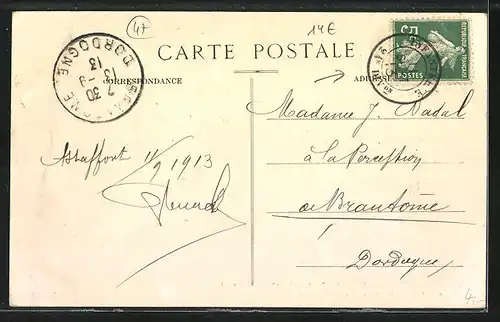 47
14€
CARTE POSTALE
CORRESPONDANCE
ADRESSE
BRANTOME
7 30
13 -9
13
DORDOGNE
5c
POSTES
Madame J. Nadal
à la Perception
de Brantôme
Dordogne
Astaffort 11/9 1913
4.-